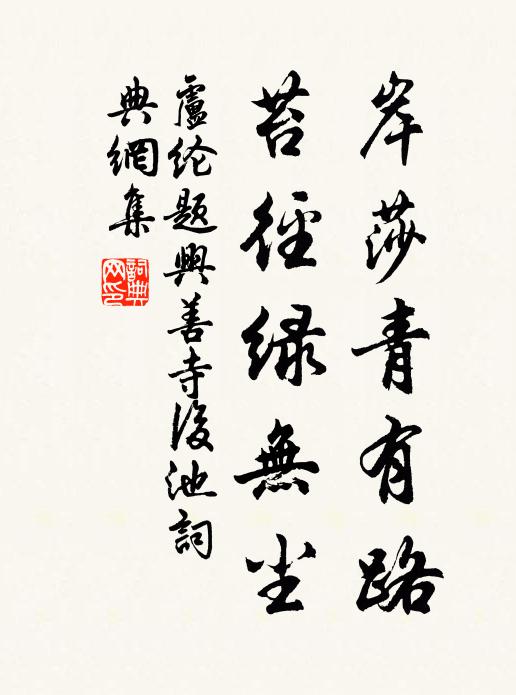 岸莎青有路
苔徑緑無尘
盧纶題興善寺後池詞
典網集
詞典
网印